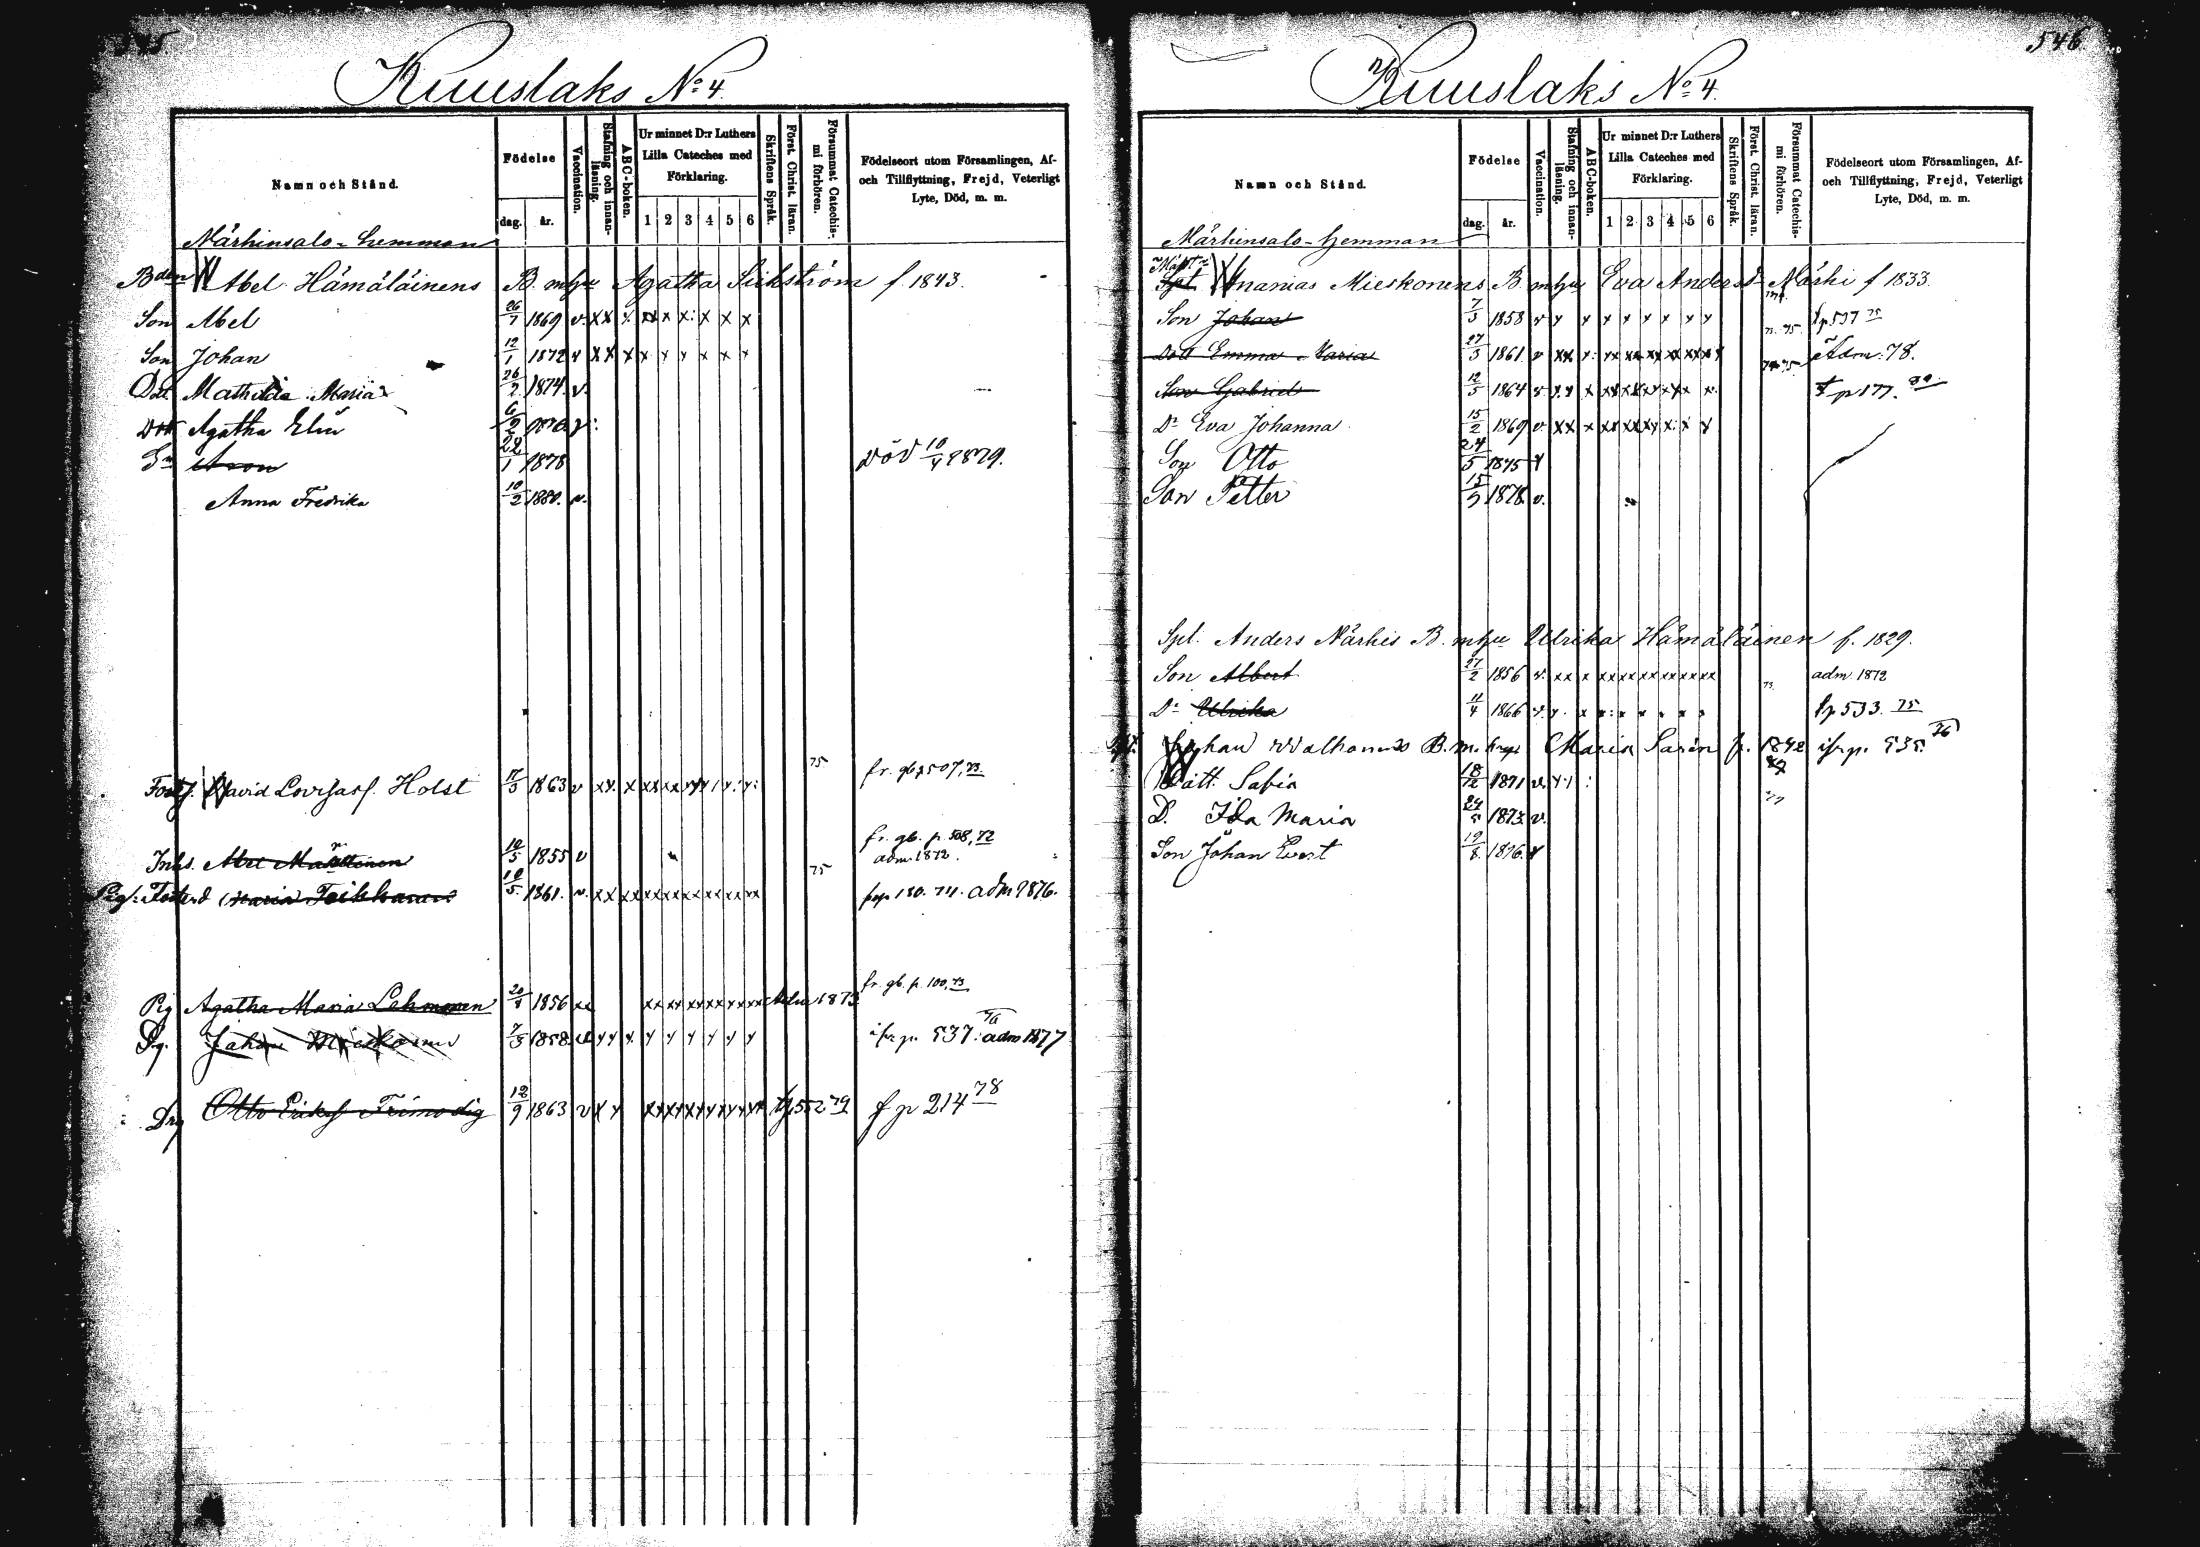 545
Kuuslaks No 4.
Namn och Stånd.
Födelse
dag.
år.
Vaccination.
Stafning och innan-läsning.
ABC-boken.
Ur minnet D:r Luthers Lilla Cateches med Förklaring.
1 2 3 4 5 6
Skriftens Språk.
Först. Christ. läran.
Försummat Catechis-mi förhören.
Födelseort utom Församlingen, Af- och Tillflyttning, Frejd, Veterligt Lyte, Död, m. m.
Närhinsalo-hemman
Bden Abel Hämäläinens B. m hu Agatha Sickström f 1843.
Son Abel 26/7 1869 v. xx x. xx x x: x x x
Son Johan 12/1 1872 v xx x x x y x x x
Dott. Mathilda Maria 26/2 1874. v.
Dott Agatha Elin 6/2 v.
Sn Aron 22/1 1878 död 10/4 1879.
Anna Fredrika 10/2 1880. v.
Fosts. David Lovisas f. Holst 17/3 1863 v xx. x 75 fr. gb p 507, 73.
Inhs. 10/5 1855 v fr. gb. p. 508, 72
adm. 1872.
Pig. Fosterd Maria Toikkanen 10/5 1861. v. xx xx 75 p 180. 74. adm 1876.
Pig Agatha Maria Lahmonen 20/8 1856 Adm 1873 fr. gb. p. 100, 73
Dg. Johan Mieskonen 7/3 1858. y y y. y y y y y y p. 537. 76 adm 1877
Drg Otto Eriks f Frimodig 12/9 1863 v x y 552 79 f p 214 78
546
Kuuslaks No 4.
Namn och Stånd.
Födelse
dag.
år.
Vaccination.
Stafning och innan-läsning.
ABC-boken.
Ur minnet D:r Luthers Lilla Cateches med Förklaring.
1 2 3 4 5 6
Skriftens Språk.
Först. Christ. läran.
Försummat Catechis-mi förhören.
Födelseort utom Församlingen, Af- och Tillflyttning, Frejd, Veterligt Lyte, Död, m. m.
Närhinsalo-hemman
Spl. Ananias Mieskonens B. m hu Eva Andersd Närhi f 1833.
Son Johan 7/3 1858 v y y y y y y y y p 537 75
Dott Emma Maria 27/3 1861. v xx x: 73. 75. Adm. 78.
Son Gabriel 12/5 1864 v. y. y x 75 p 177. 80.
Dr Eva Johanna 15/2 1869 v. xx x
Son Otto 24/5 1875 v
Son Petter 15/9 1878. v.
Spl. Anders Närhis B. m hu Ulrika Hämäläinen f. 1829.
Son Albert 27/2 1856 v. xx x xx xx xx xx xx xx 73. adm. 1872
Dr Ulrika 11/4 1866 v. y. x p 533. 75
Johan Walhonens B. m. h Maria Sarin f. 1842 p. 535. 76
Dött. Sabia 18/12 1871 v.
D. Ida Maria 24/5 1873. v. 77
Son Johan Evert 19/8. 1876. v